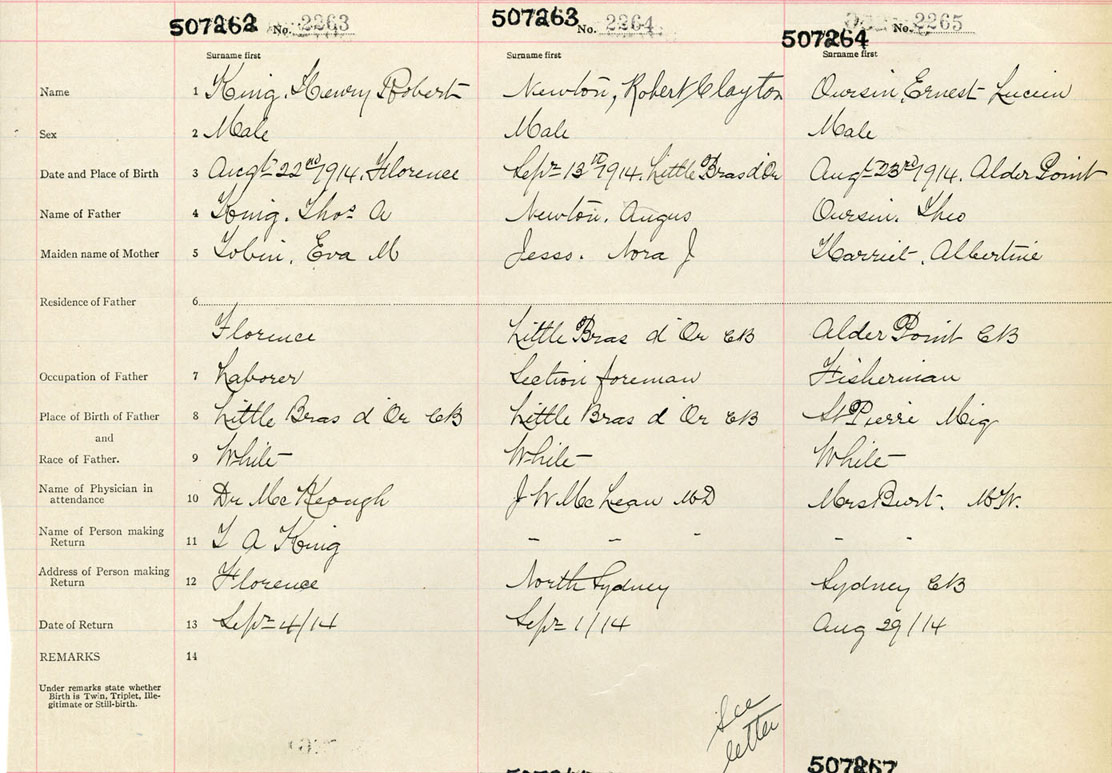 507262 No. 2263 507263 No. 2264 507264 No. 2265
Surname first Surname first Surname first
Name 1 King, Henry Robert Newton, Robert Clayton Oursin, Ernest Lucien
Sex 2 Male Male Male
Date and Place of Birth 3 Augt 22nd 1914. Florence Sepr 13th 1914. Little Bras d'Or Augt 23rd 1914. Alder Point
Name of Father 4 King. Thos A Newton. Angus Oursin. Theo
Maiden name of Mother 5 Tobin, Eva M Jesso. Nora J Harriet, Albertine
Residence of Father 6
Florence Little Bras d Or CB Alder Point CB
Occupation of Father 7 Laborer Section foreman Fisherman
Place of Birth of Father 8 Little Bras d Or CB Little Bras d Or CB St Pierre Miq
and
Race of Father. 9 White White White
Name of Physician in
attendance 10 Dr McKeough J W McLean MD Mrs Burt. M.W.
Name of Person making
Return 11 T A King - - - - -
Address of Person making
Return 12 Florence North Sydney Sydney CB
Date of Return 13 Sepr 4/14 Sepr 1/14 Aug 29/14
REMARKS 14
Under remarks state whether
Birth is Twin, Triplet, Ille-
gitimate or Still-birth.
See
letter
507267